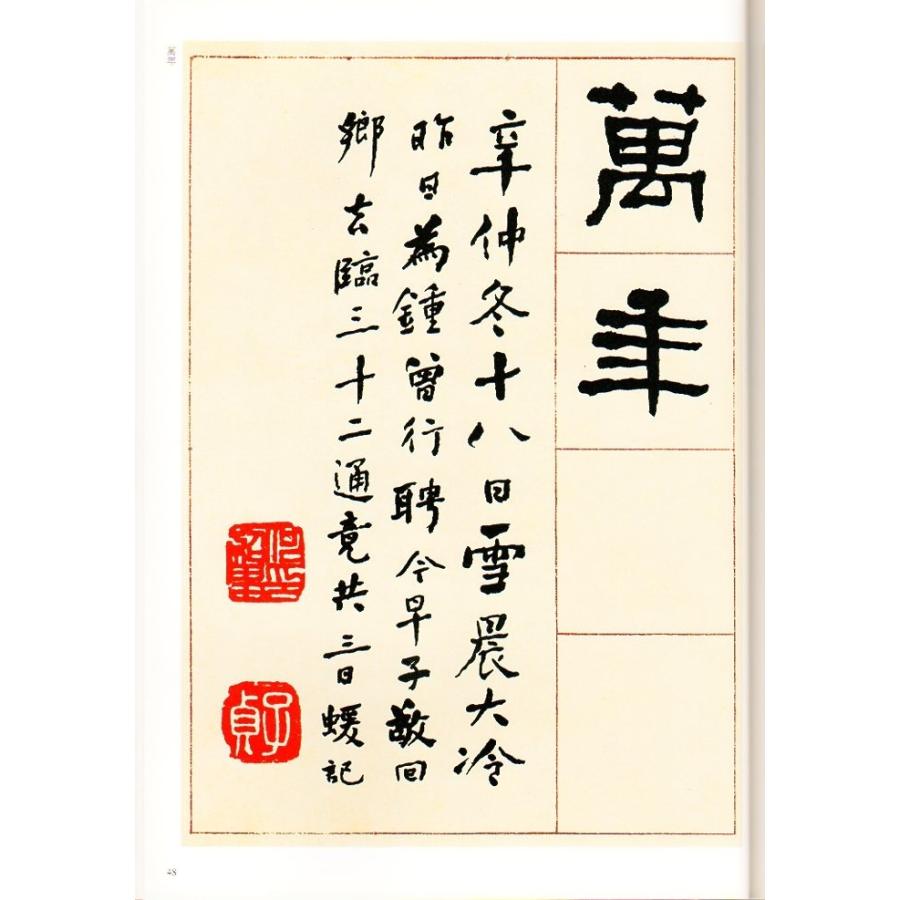 萬年
辛仲冬十八日雪晨大冷
昨日為鍾曾行聘今早子敬回
鄉去臨三十二通竟共三日蝯記
子貞
48